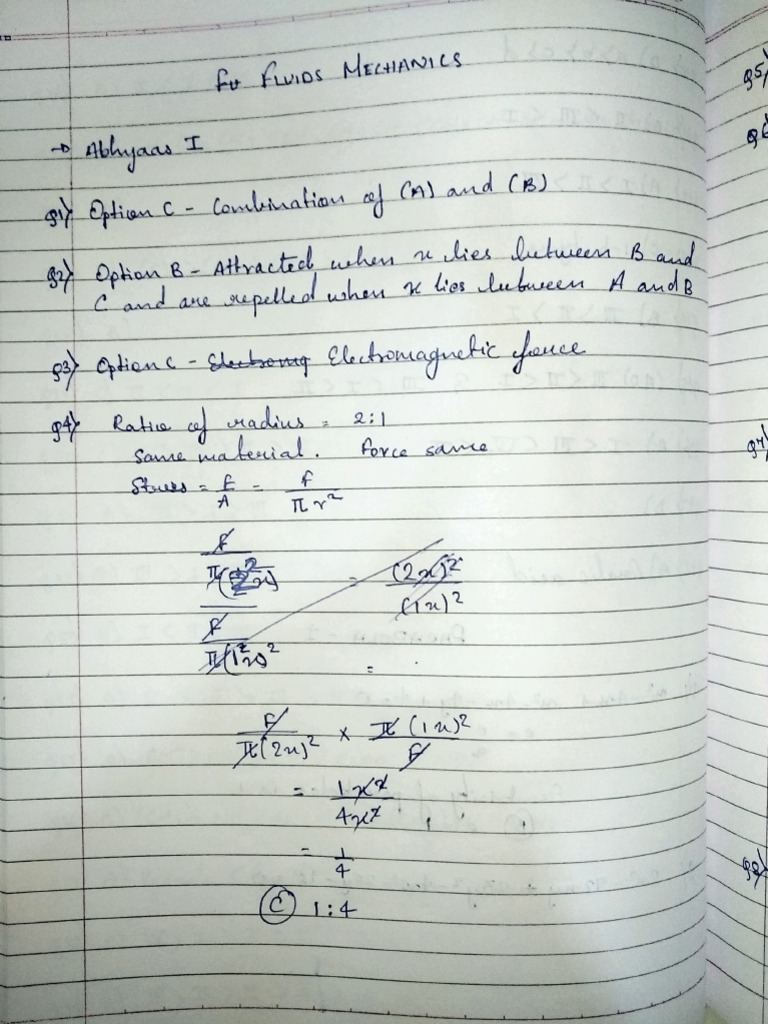 FLUIDS MECHANICS
→ Abhyaas I
Q1) Option C - Combination of (A) and (B)
Q2) Option B - Attracted when x lies between B and
C and are repelled when x lies between A and B
Q3) Option C - Electromagnetic force
Q4) Ratio of radius = 2:1
Same material. Force same
Stress = F/A = F/πr²
= (2x)²/(1x)²
=
F/π(2x)² × π(1x)²/F
= 1x²/4x²
= 1/4
(C) 1:4
Q5)
Q6)
Q7)
Q8)